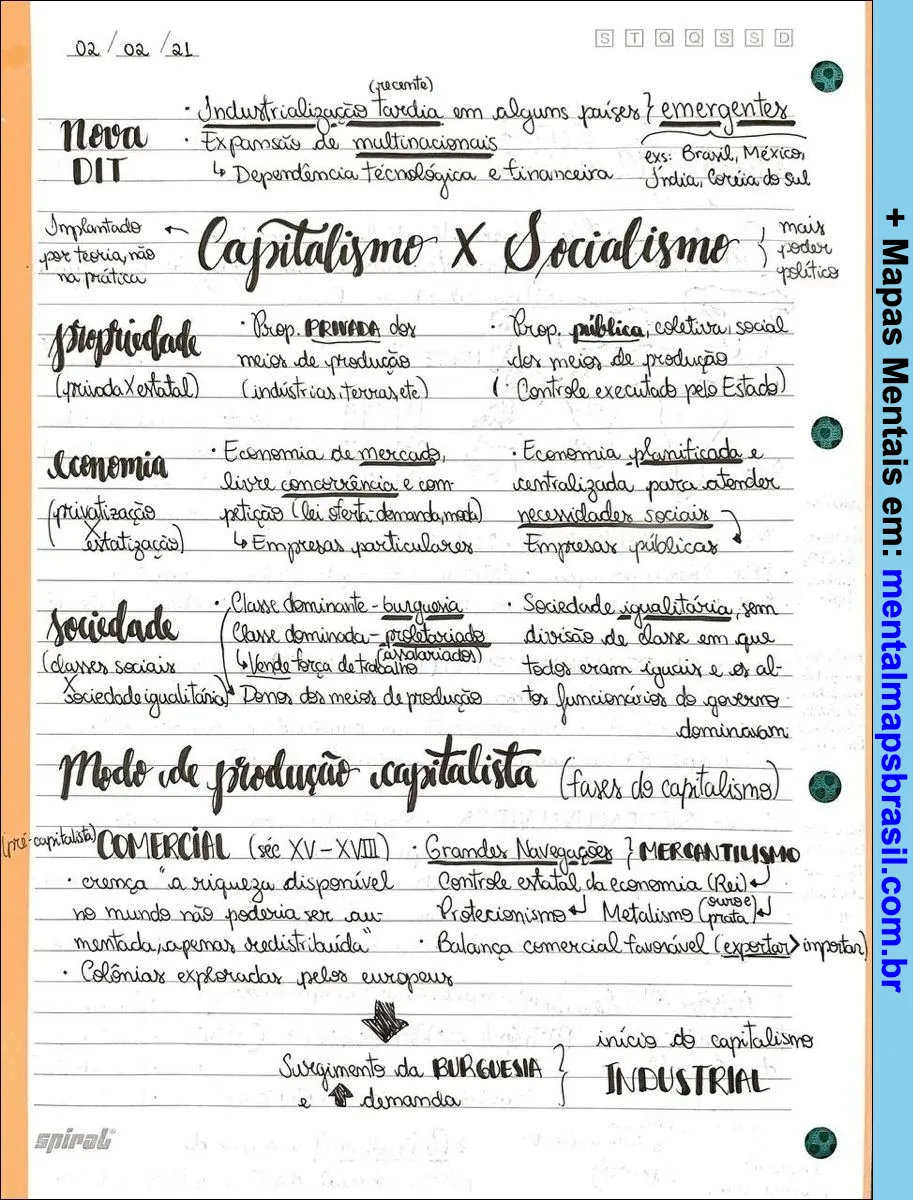 02/02/21
S T Q Q S S D
(recente)
Nova DIT
· Industrialização tardia em alguns países } emergentes
· Expansão de multinacionais
↳ Dependência técnológica e financeira
exs: Brasil, México,
Índia, Coréia do sul
Implantado
por teoria, não
na prática
Capitalismo X Socialismo
mais
poder
político
propriedade
(privada X estatal)
· Prop. PRIVADA dos
meios de produção
(indústrias, terras etc)
· Prop. pública, coletiva, social
dos meios de produção
(· Controle executado pelo Estado)
economia
(privatização
X
estatização)
· Economia de mercado,
livre concorrência e com-
petição (lei oferta-demanda, moda)
↳ Empresas particulares
· Economia planificada e
centralizada para atender
necessidades sociais
Empresas públicas
sociedade
(classes sociais
X
sociedade igualitária)
· Classe dominante - burguesia
Classe dominada - proletariado
(assalariados)
↳ Vende força de trabalho
Donos dos meios de produção
· Sociedade igualitária, sem
divisão de classe em que
todos eram iguais e os al-
tos funcionários do governo
dominavam
Modo de produção capitalista (fases do capitalismo)
(pré-capitalista) COMERCIAL (séc XV - XVIII)
· crença "a riqueza disponível
no mundo não poderia ser au-
mentada, apenas redistribuída"
· Colônias exploradas pelos europeus
· Grandes Navegações } MERCANTILISMO
Controle estatal da economia (Rei)
Protecionismo Metalismo (ouro e prata)
· Balança comercial favorável (exportar > importar)
Surgimento da BURGUESIA
e ⬆ demanda
início do capitalismo
INDUSTRIAL
spiral
+ Mapas Mentais em: mentalmapsbrasil.com.br